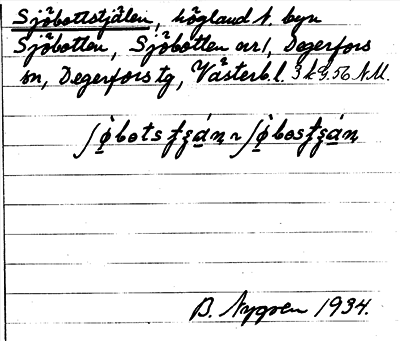 Sjöbottstjälen, högland t. byn
Sjöbotten, Sjöbotten nr 1, Degerfors
sn, Degerfors tg, Västerb. l. 3 k 9.56 N.M.
ʃǫ̀bots ~ ʃǫ̀bos
B. Nygren 1934.